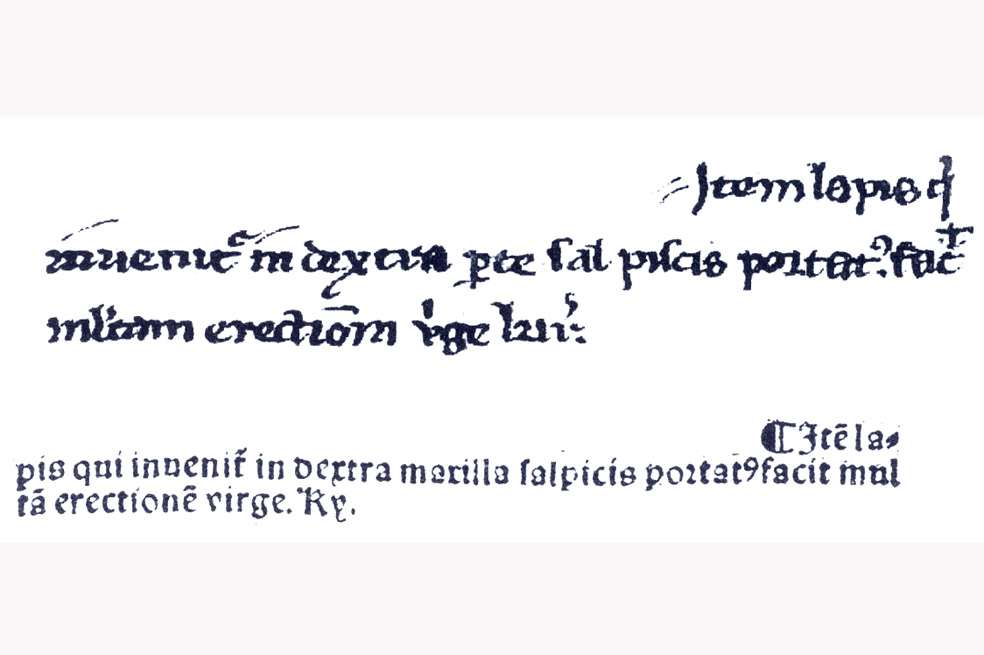 Item lapis q̄
inuenit᷑ in dextra ꝑte sal piscis portatꝰ. facͭ
ml̓tam erectiōm v̓ge
¶ Itē la⸗
pis qui inuenit᷑ in dextra maxilla ſalpicis portatꝰ facit mul
tā erectionē virge. Ky.